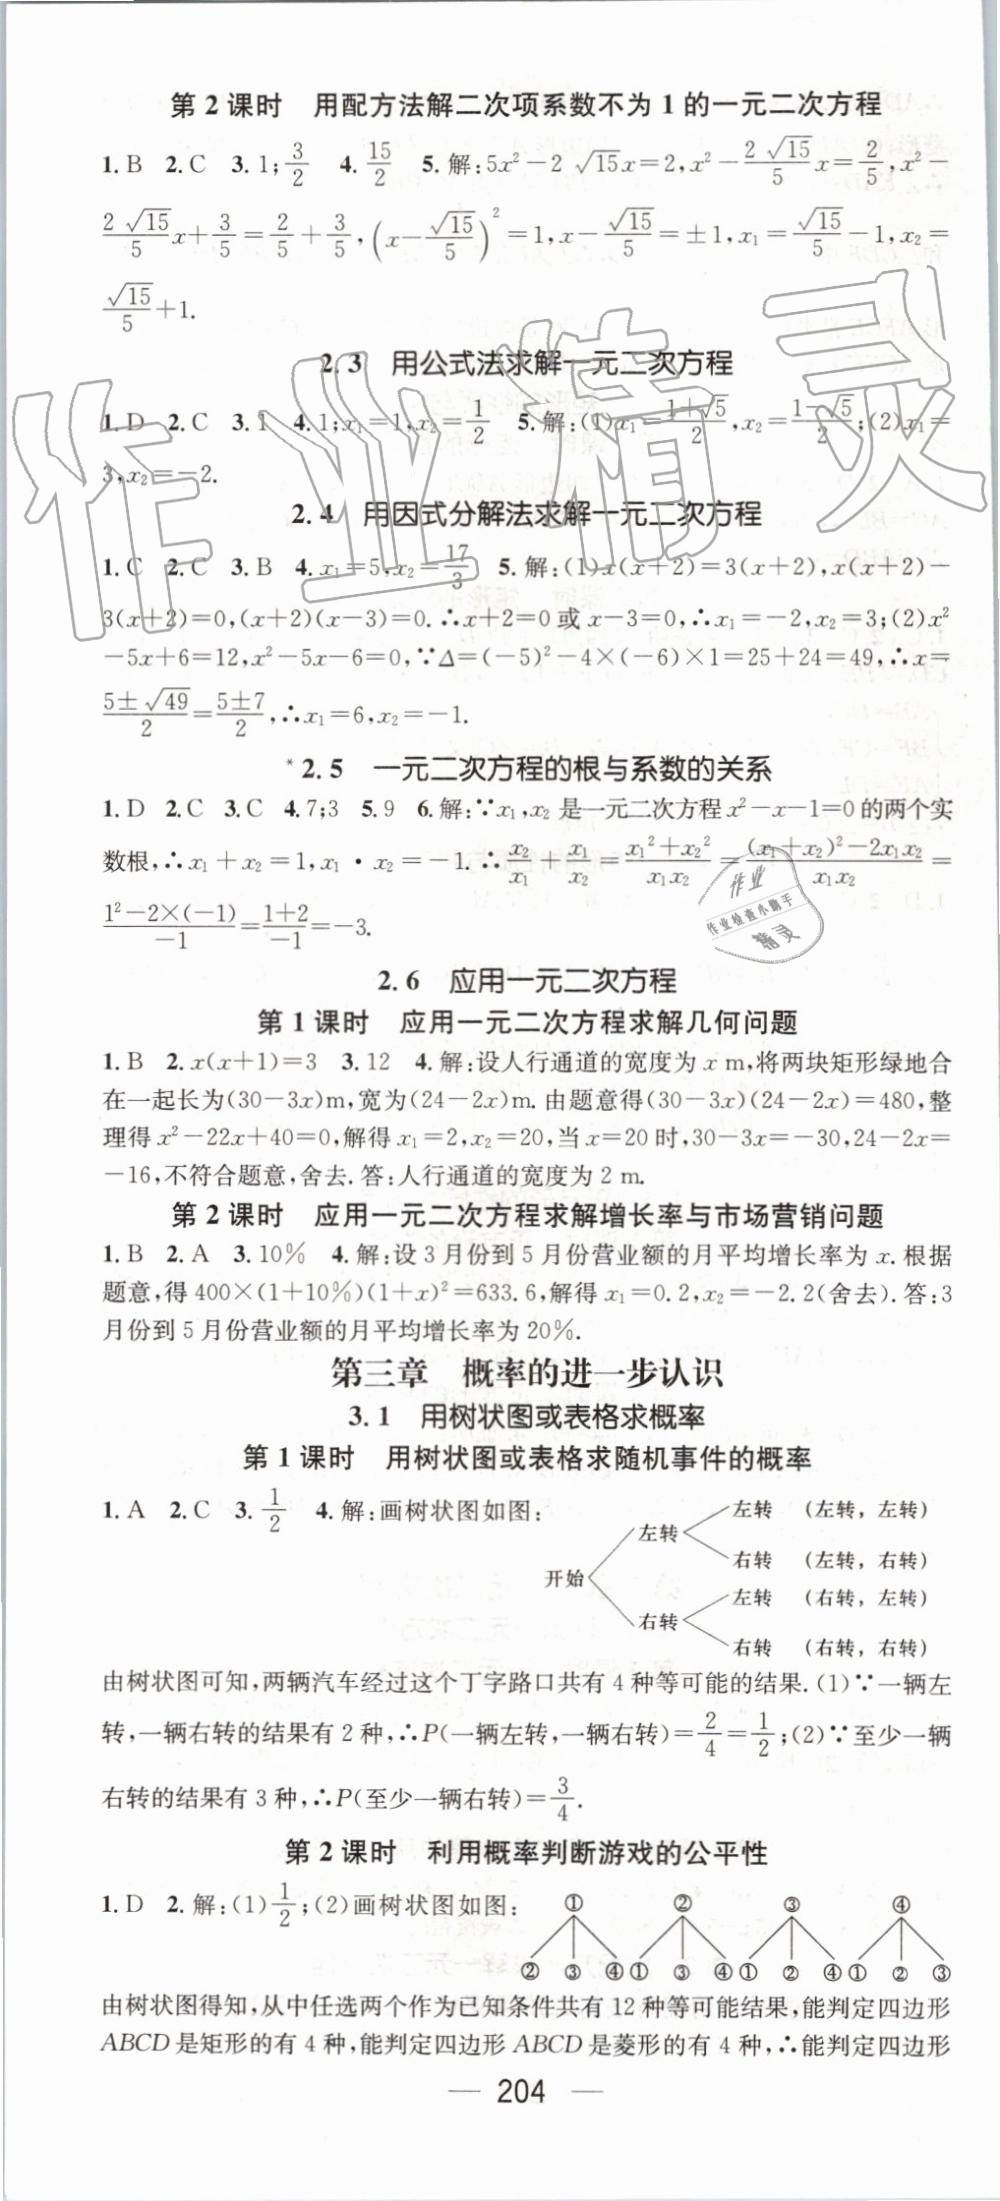 第 2 课时　用配方法解二次项系数不为 1 的一元二次方程
1. B 2. C 3. 1; 3/2 4. 15/2 5. 解:5x²－2 √15x＝2,x²－(2 √15)/5 x＝2/5,x²－
(2 √15)/5 x＋3/5＝2/5＋3/5,(x－√15/5)²＝1,x－√15/5＝±1,x₁＝√15/5－1,x₂＝
√15/5＋1.
2.3　用公式法求解一元二次方程
1. D 2. C 3. 1 4. 1;x₁＝1,x₂＝1/2 5. 解:(1)x₁＝(1＋√5)/2,x₂＝(1－√5)/2;(2)x₁＝
3,x₂＝－2.
2.4　用因式分解法求解一元二次方程
1. C 2. C 3. B 4. x₁＝5,x₂＝17/3 5. 解:(1)x(x＋2)＝3(x＋2),x(x＋2)－
3(x＋2)＝0,(x＋2)(x－3)＝0.∴x＋2＝0 或 x－3＝0,∴x₁＝－2,x₂＝3;(2)x²
－5x＋6＝12,x²－5x－6＝0,∵Δ＝(－5)²－4×(－6)×1＝25＋24＝49,∴x＝
(5±√49)/2＝(5±7)/2,∴x₁＝6,x₂＝－1.
*2.5　一元二次方程的根与系数的关系
1. D 2. C 3. C 4. 7;3 5. 9 6. 解:∵x₁,x₂ 是一元二次方程 x²－x－1＝0 的两个实
数根,∴x₁＋x₂＝1,x₁·x₂＝－1.∴x₂/x₁＋x₁/x₂＝(x₁²＋x₂²)/(x₁x₂)＝((x₁＋x₂)²－2x₁x₂)/(x₁x₂)＝
(1²－2×(－1))/(－1)＝(1＋2)/(－1)＝－3.
2.6　应用一元二次方程
第 1 课时　应用一元二次方程求解几何问题
1. B 2. x(x＋1)＝3 3. 12 4. 解:设人行通道的宽度为 x m,将两块矩形绿地合
在一起长为(30－3x)m,宽为(24－2x)m. 由题意得(30－3x)(24－2x)＝480,整
理得 x²－22x＋40＝0,解得 x₁＝2,x₂＝20,当 x＝20 时,30－3x＝－30,24－2x＝
－16,不符合题意,舍去.答:人行通道的宽度为 2 m.
第 2 课时　应用一元二次方程求解增长率与市场营销问题
1. B 2. A 3. 10% 4. 解:设 3 月份到 5 月份营业额的月平均增长率为 x.根据
题意,得 400×(1＋10%)(1＋x)²＝633.6,解得 x₁＝0.2,x₂＝－2.2(舍去).答:3
月份到 5 月份营业额的月平均增长率为 20%.
第三章　概率的进一步认识
3.1　用树状图或表格求概率
第 1 课时　用树状图或表格求随机事件的概率
1. A 2. C 3. 1/2 4. 解:画树状图如图:
左转 (左转，左转)
左转
右转 (左转，右转)
开始
左转 (右转，左转)
右转
右转 (右转，右转)
由树状图可知,两辆汽车经过这个丁字路口共有 4 种等可能的结果.(1)∵一辆左
转,一辆右转的结果有 2 种,∴P(一辆左转,一辆右转)＝2/4＝1/2;(2)∵至少一辆
右转的结果有 3 种,∴P(至少一辆右转)＝3/4.
第 2 课时　利用概率判断游戏的公平性
1. D 2. 解:(1)1/2;(2)画树状图如图:
① ② ③ ④
② ③ ④ ① ③ ④ ① ② ④ ① ② ③
由树状图得知,从中任选两个作为已知条件共有 12 种等可能结果,能判定四边形
ABCD 是矩形的有 4 种,能判定四边形 ABCD 是菱形的有 4 种,∴能判定四边形
— 204 —
作业精灵
作业
作业检查小助手
精灵